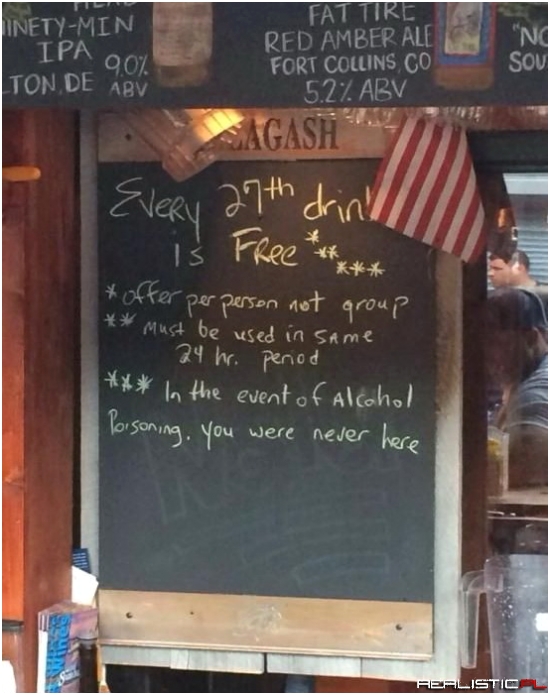 NINETY-MIN
IPA
LTON, DE 9.0%
ABV
FAT TIRE
RED AMBER ALE
FORT COLLINS, CO
5.2% ABV
"NO
SOU
LAGASH
Every 27th drin
is FREE * ** ***
* offer per person not group
** Must be used in same
24 hr. period
*** In the event of Alcohol
Poisoning, you were never here
REALISTIC.PL